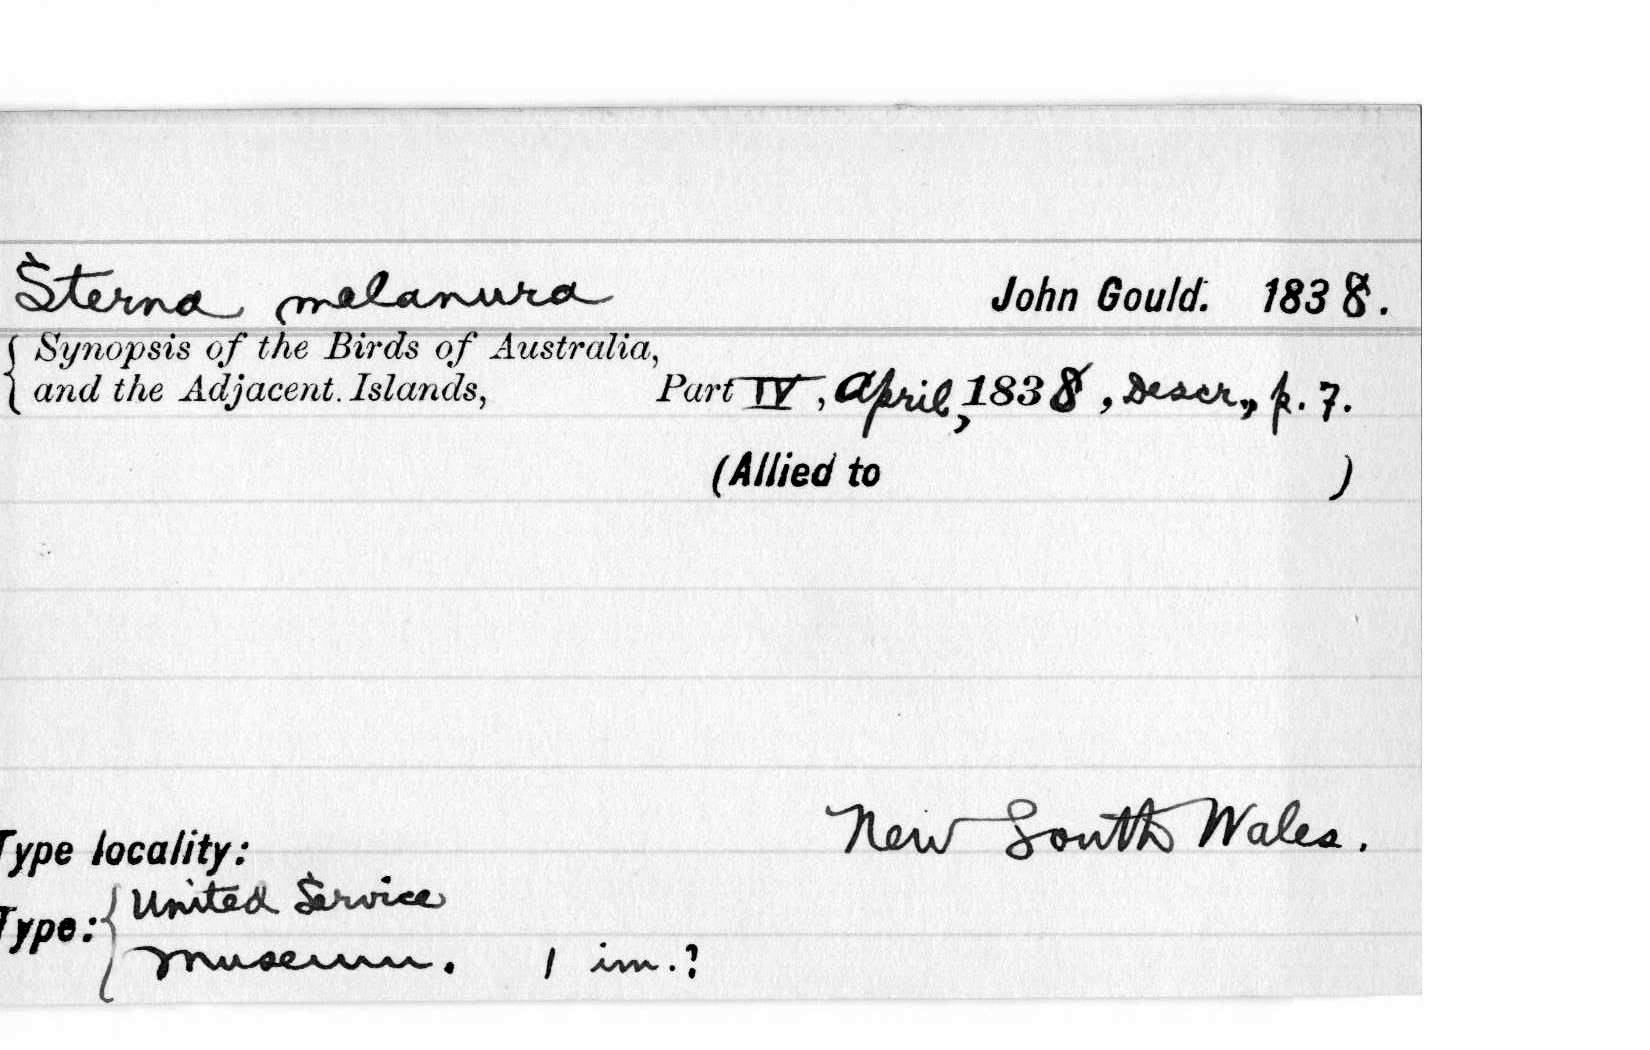 Sterna melanura John Gould. 1838.
{ Synopsis of the Birds of Australia,
and the Adjacent Islands, Part IV, April, 1838, Descr., p. 7.
(Allied to )
Type locality: New South Wales.
Type: { United Service
Museum. 1 im.?